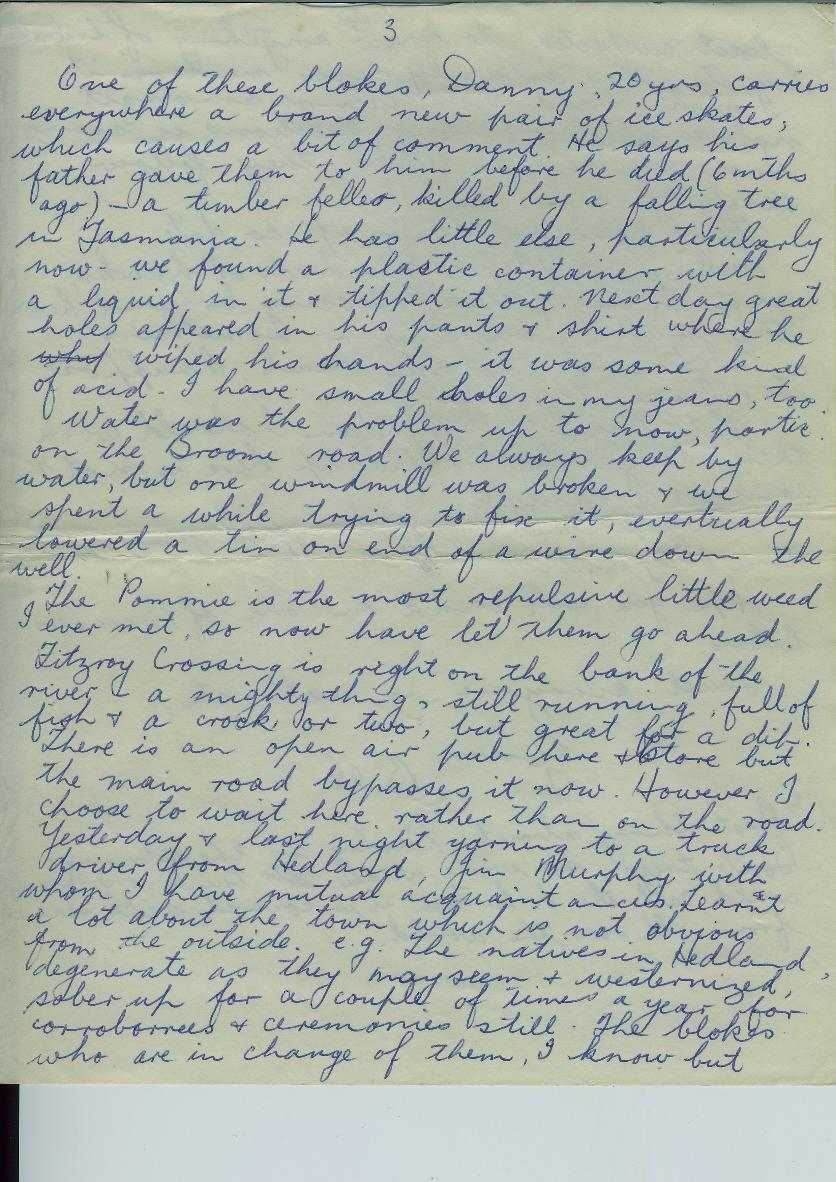 3
One of these blokes, Danny, 20 yrs, carries
everywhere a brand new pair of ice skates,
which causes a bit of comment. He says his
father gave them to him before he died (6 mths
ago) - a timber feller, killed by a falling tree
in Tasmania. He has little else, particularly
now - we found a plastic container with
a liquid in it & tipped it out. Next day great
holes appeared in his pants & shirt where he
wiped his hands - it was some kind
of acid. I have small holes in my jeans, too.
Water was the problem up to now, partic.
on the Broome road. We always keep by
water, but one windmill was broken & we
spent a while trying to fix it, eventually
lowered a tin on end of a wire down the
well.
The Pommie is the most repulsive little weed
I ever met, so now have let them go ahead.
Fitzroy Crossing is right on the bank of the
river - a mighty thing, still running, full of
fish & a crock or two, but great for a dip.
There is an open air pub here & store but
the main road bypasses it now. However I
choose to wait here rather than on the road.
Yesterday & last night yarning to a truck
driver from Hedland, Jim Murphy with
whom I have mutual acquaintances. Learnt
a lot about the town which is not obvious
from the outside. e.g. The natives in Hedland,
degenerate as they may seem & westernized,
sober up for a couple of times a year for
corroborrees & ceremonies still. The blokes
who are in change of them, I know but